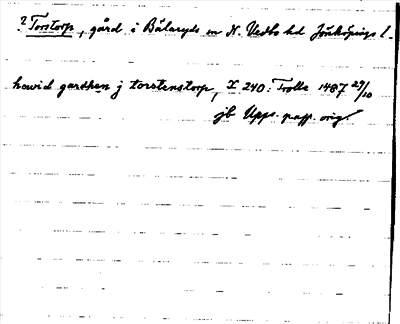 ? Torstorp, gård i Bälaryds sn N. Vedbo hd Jönköpings l.
howid gardhen j torstenstorp, X 240. Trolle 1487 29/10
jb Upps. papp. orig.